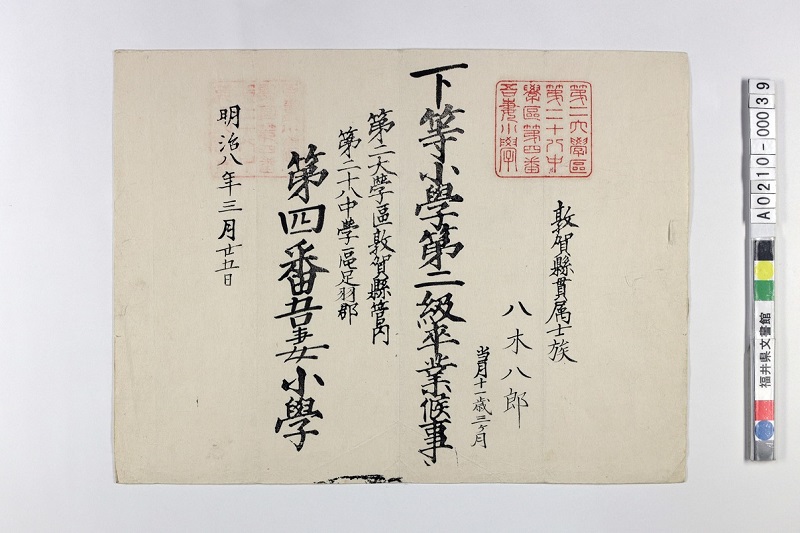 第二大學區
第二十八中
學區第四番
吾妻小學
敦賀縣貫属士族
八木八郎
当月十一歳三ヶ月
下等小學第二級卒業候事
第二大學區敦賀縣管内
第二十八中學區足羽郡
第四番吾妻小學
明治八年三月廿五日
A0210-00039
福井県文書館